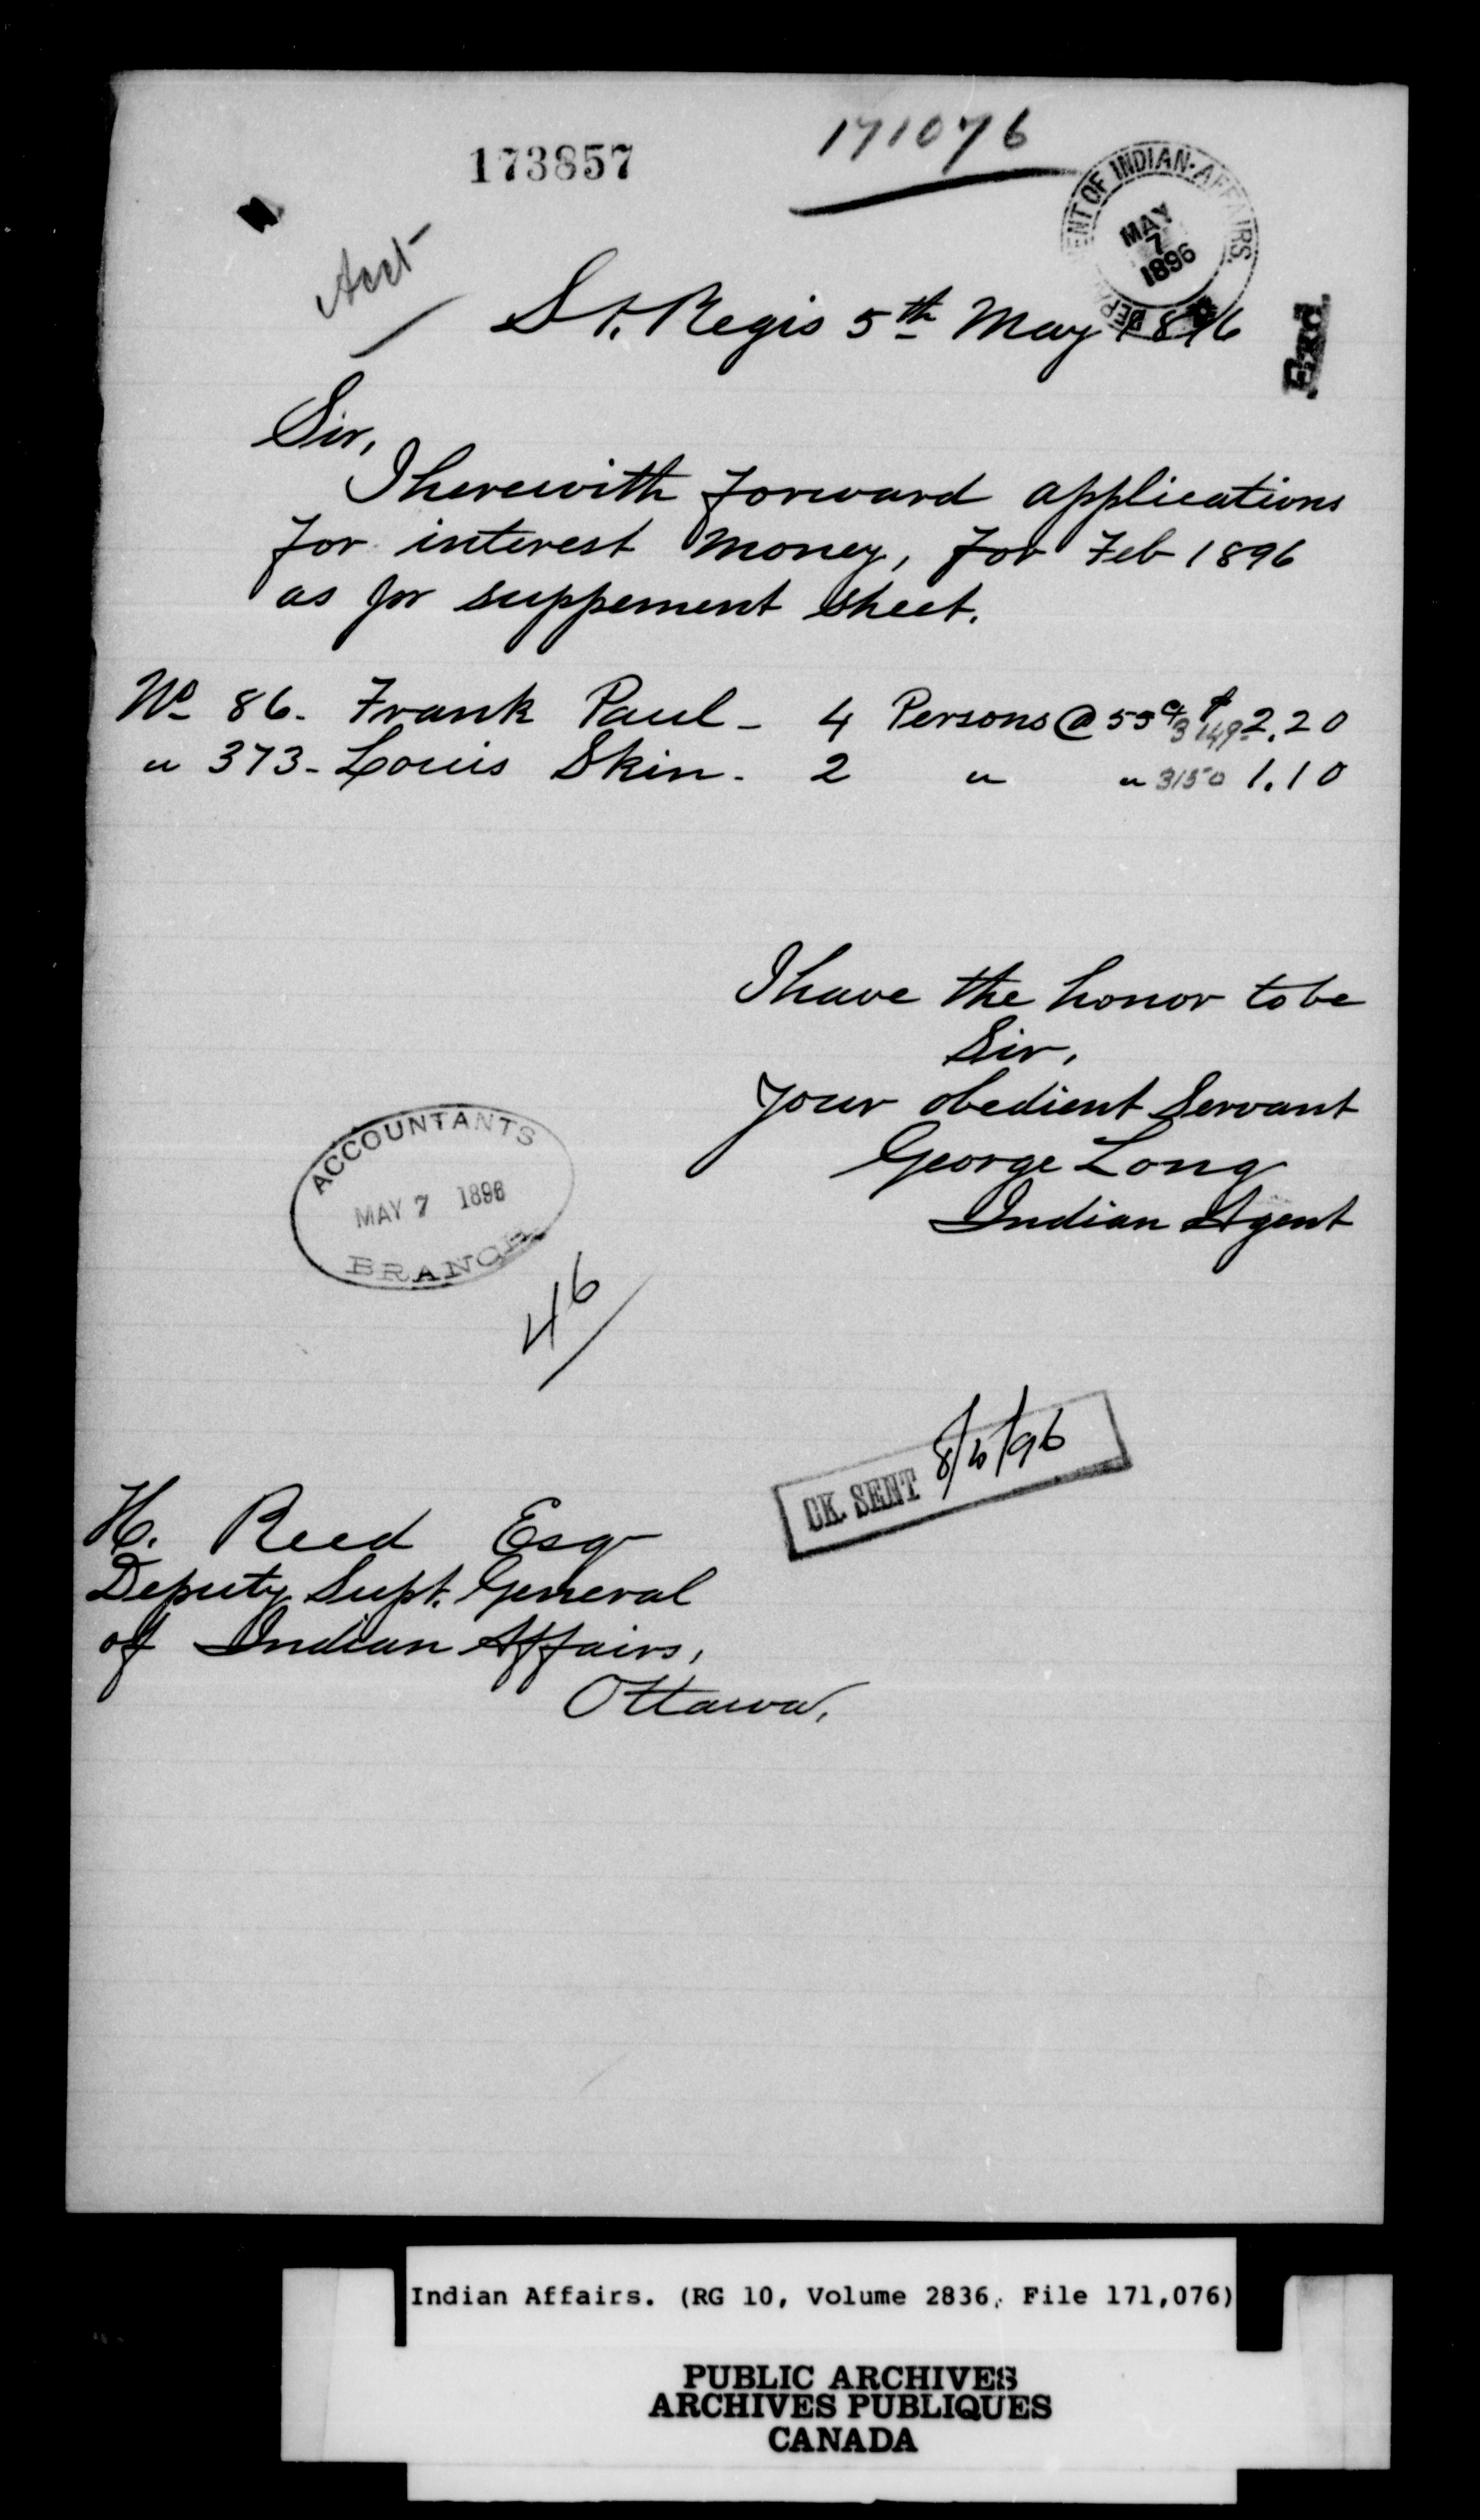 173857
171076
DEPARTMENT OF INDIAN AFFAIRS.
MAY
7
1896
Acct
St. Regis 5th May 1896
Sir,
I herewith forward applications
for interest money, for Feb 1896
as per suppement sheet.
No 86. Frank Paul - 4 Persons @ 55c 3149 $2.20
" 373 - Louis Skin - 2 " " 3150 1.10
I have the honor to be
Sir,
your obedient Servant
George Long
Indian Agent
ACCOUNTANTS
MAY 7 1896
BRANCH
46
CK. SENT 8/5/96
H. Reed Esq
Deputy Supt. General
of Indian Affairs,
Ottawa.
Indian Affairs. (RG 10, Volume 2836, File 171,076)
PUBLIC ARCHIVES
ARCHIVES PUBLIQUES
CANADA